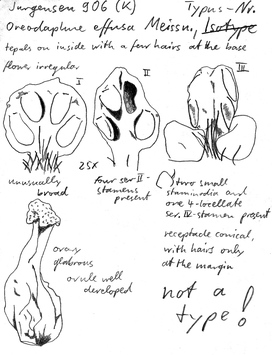 Jurgensen 906 (K) Typus-Nr.
Oreodaphne effusa Meissn., Isotype
tepals on inside with a few hairs at the base
flower irregular
I
II
III
unusually
broad
25x
four ser II-
stamens
present
two small
staminodia and
one 4-locellate
ser. IV-stamen present
ovary
glabrous
ovule well
developed
receptacle conical,
with hairs only
at the margin
not a
type!